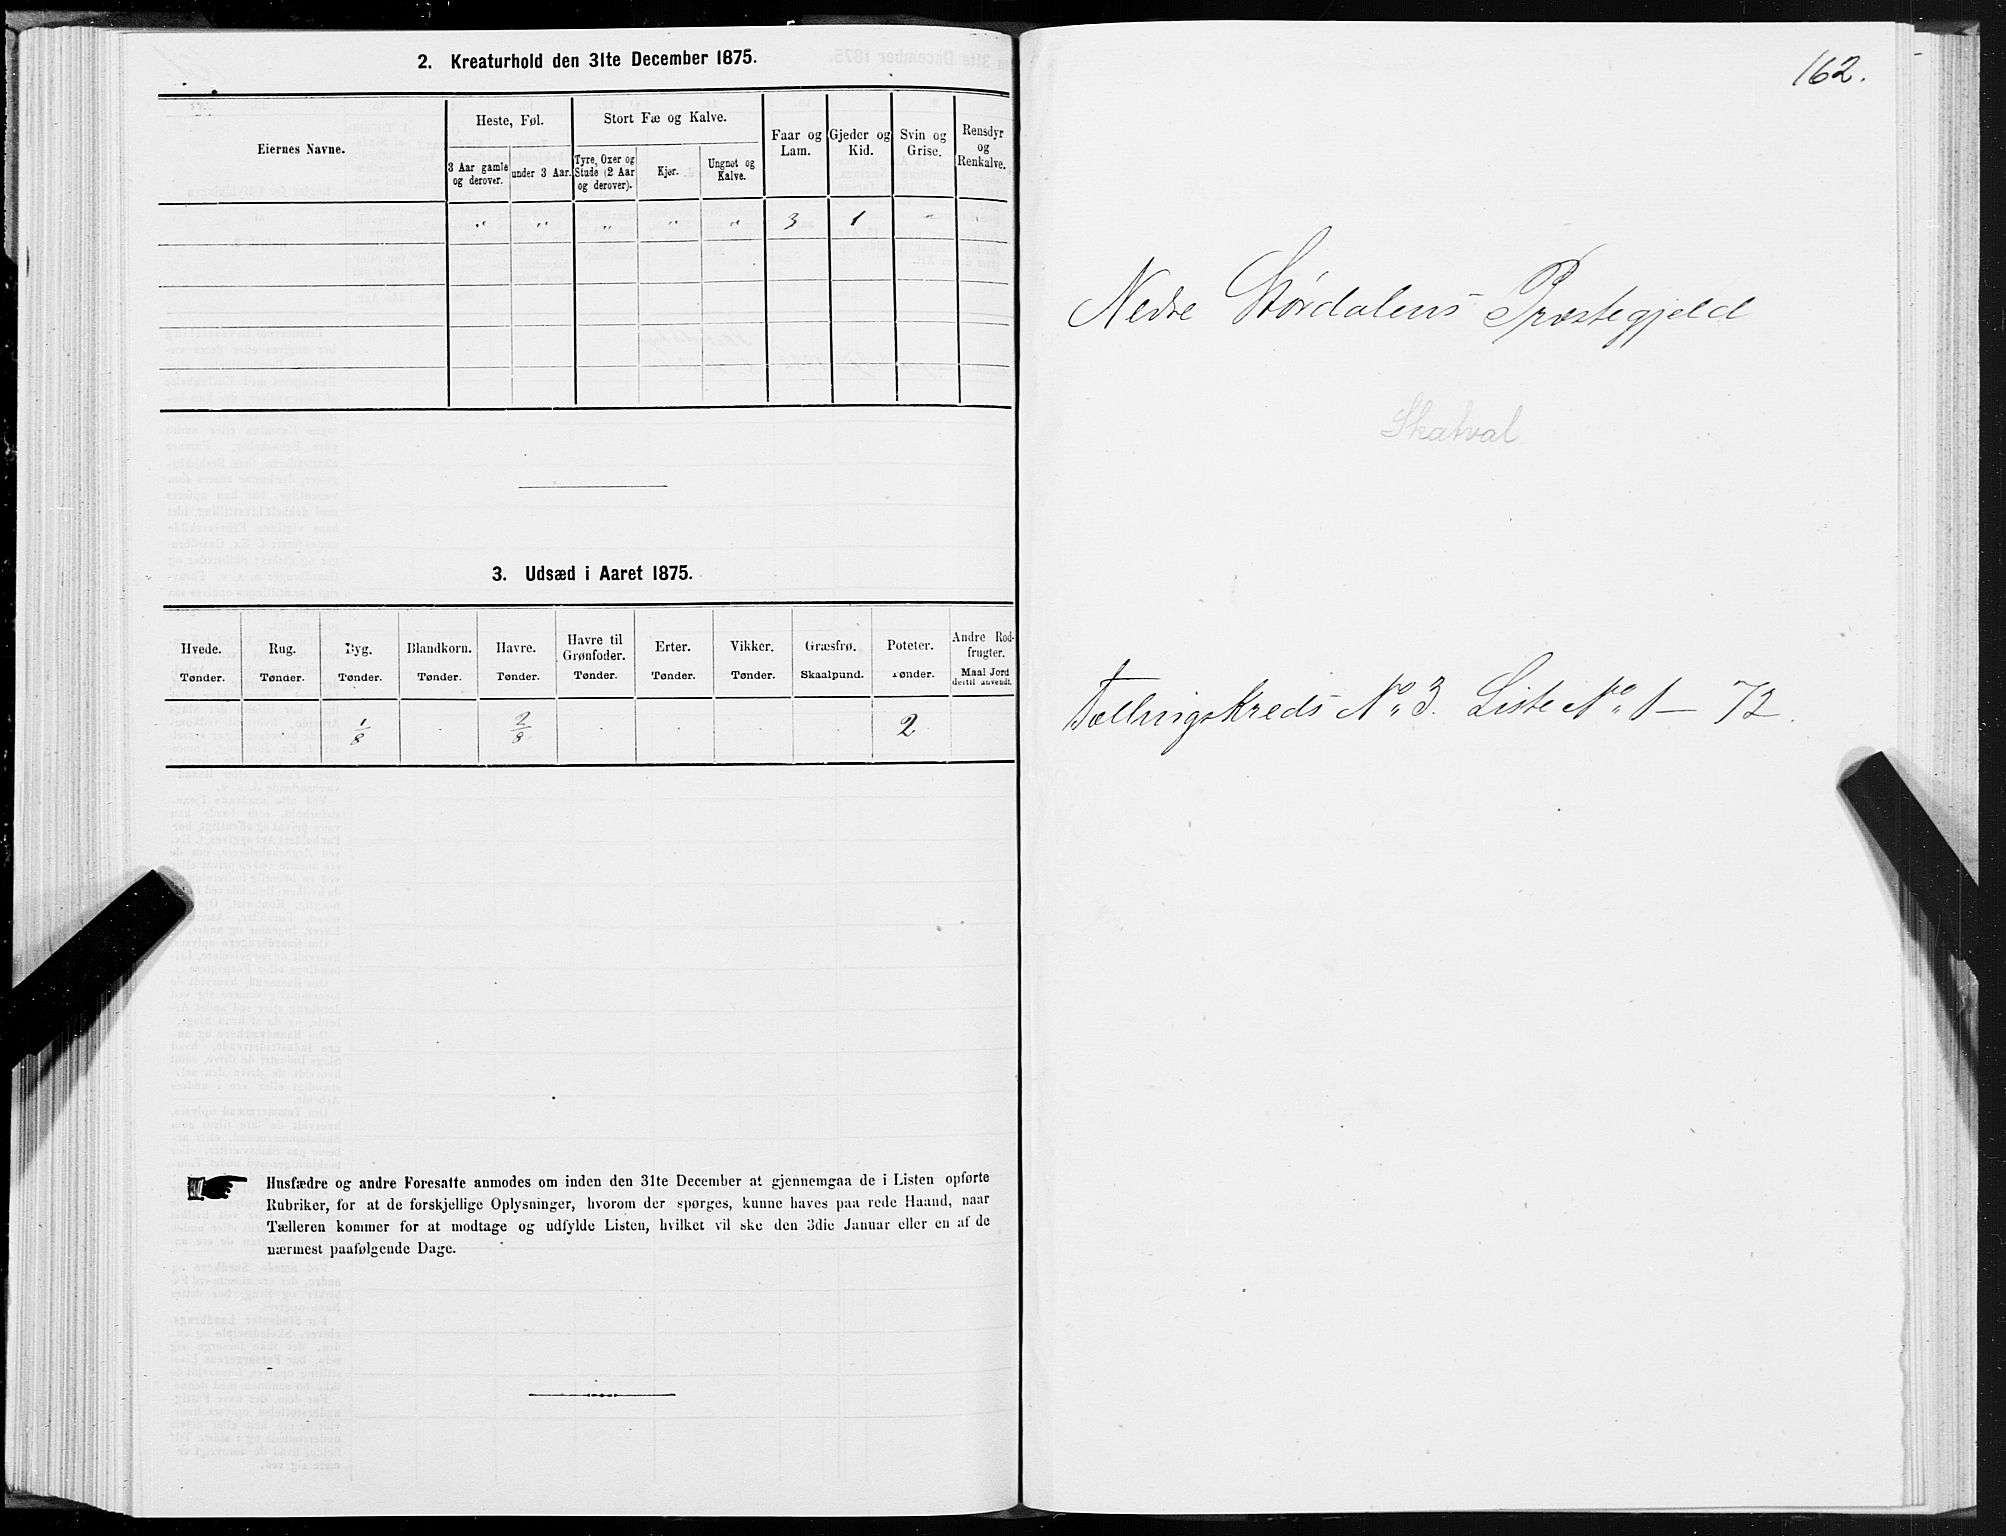 2. Kreaturhold den 31te December 1875.
Eiernes Navne.
Heste, Føl.
Stort Fæ og Kalve.
Faar og Lam.
Gjeder og Kid.
Svin og Grise.
Rensdyr og Renkalve.
3 Aar gamle og derover.
under 3 Aar.
Tyre, Oxer og Stude (2 Aar og derover).
Kjør.
Ungnøt og Kalve.
" " " " " 3 1 " "
3. Udsæd i Aaret 1875.
Hvede. Rug. Byg. Blandkorn. Havre. Havre til Grønfoder. Erter. Vikker. Græsfrø. Poteter. Andre Rodfrugter.
Tønder. Tønder. Tønder. Tønder. Tønder. Tønder. Tønder. Tønder. Skaalpund. Tønder. Maal Jord dertil anvendt.
. . 1/8 . 2/8 . . . . 2
Husfædre og andre Foresatte anmodes om inden den 31te December at gjennemgaa de i Listen opførte
Rubriker, for at de forskjellige Oplysninger, hvorom der spørges, kunne haves paa rede Haand, naar
Tælleren kommer for at modtage og udfylde Listen, hvilket vil ske den 3die Januar eller en af de
nærmest paafølgende Dage.
162.
Nedre Størdalens Præstegjeld
Skatval
Tællingskreds No. 3. Liste No. 1 - 72.